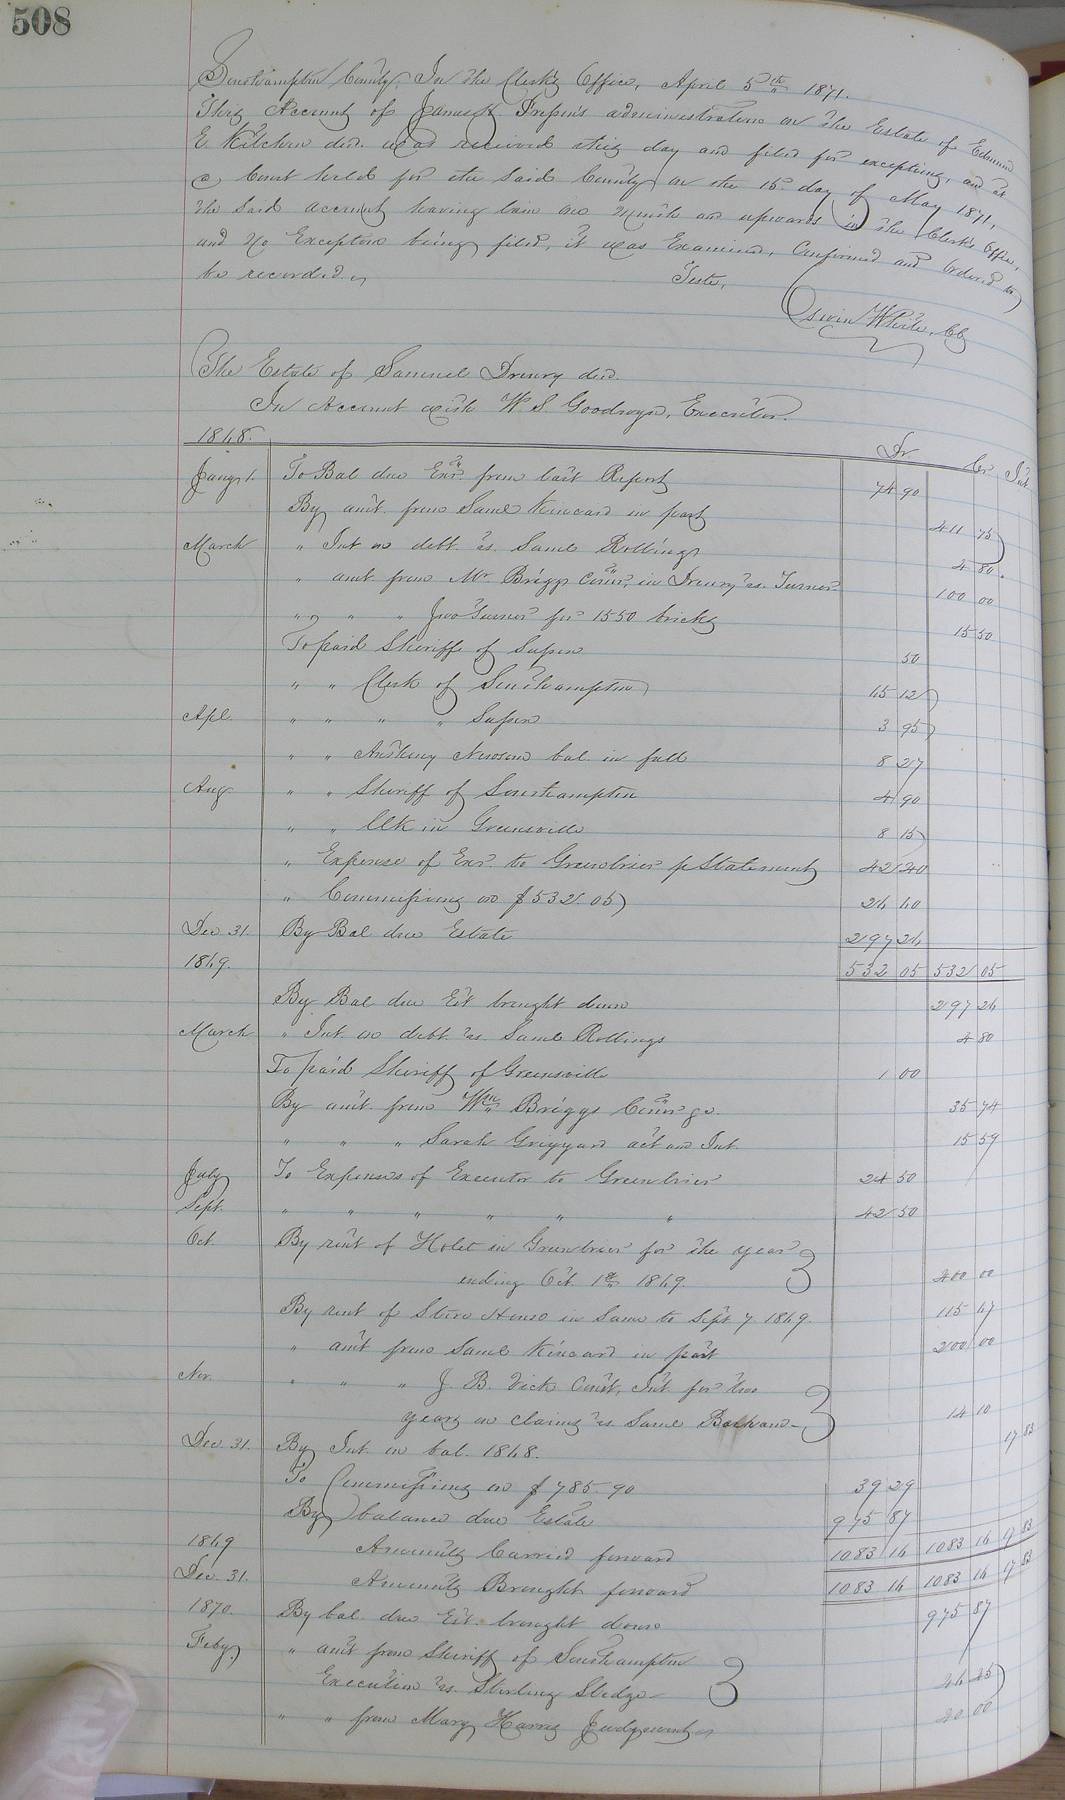 508
Southampton County, In the Clerk's Office, April 5th 1871.
This Account of James H. administration on the Estate of Edmund
E Kitchen decd. was received this day and filed for exceptions, and at
a Court held for the said County on the 15 day of May 1871,
the said account having been one month and upwards in the Clerk's Office,
and no Exceptions being filed, it was Examined, Confirmed and Ordered to
be recorded.
Teste,
White, Clk
The Estate of Samuel Drewry decd.
In Account with W. S. Goodwyn, Executor.
1848. Dr Cr Int
Jany 1. To Bal due Exr. from last Report 74 90
By amt. from Saml Kincard in part 411 75
March " Int on debt vs. Saml Rollings 4 80
" amt from Mr Briggs Comr. in Drewry vs. Turner 100 00
" " " Jno Turner for 1550 bricks 15 50
To paid Sheriff of Sussex 50
" " Clerk of Southampton 15 12
Apl. " " " " Sussex 3 95
" " Anthony Newsom bal in full 8 27
Aug " " Sheriff of Southampton 4 90
" " Clk in Greensville 8 15
" Expense of Exr. to Greenbrier p Statement 42 40
" Commissions on $532.05 24 40
Dec 31. By Bal due Estate 297 24
1849. 532 05 532 05
By Bal due Est brought down 297 24
March " Int. on debt vs. Saml Rollings 4 80
To paid Sheriff of Greensville 1 00
By amt. from Wm Briggs Comr &c. 35 74
" " " Sarah Grizzard act and Int. 15 59
July To Expenses of Executor to Greenbrier 24 50
Sept. " " " " " " 42 50
Oct. By rent of Hotel in Greenbrier for the year
ending Oct 1st 1849. 400 00
By rent of Store House in Same to Sept 7. 1849. 115 47
" amt from Saml Kincard in part 200 00
Nov. " " " J. B. Vick Const. Int for two
years on claims vs Saml 14 10
Dec. 31. By Int. in bal. 1848. 17 83
To Commissions on $785.90 39 29
By balance due Estate 975 87
1849 Amounts Carried forward 1083 16 1083 16 17 83
Dec. 31. Amounts Brought forward 1083 16 1083 16 17 83
1870. By bal. due Est. brought down 975 87
Feby. " amt from Sheriff of Southampton
Execution vs. Sterling Sledge 44 25
" " from Mary Harris Judgments 20 00